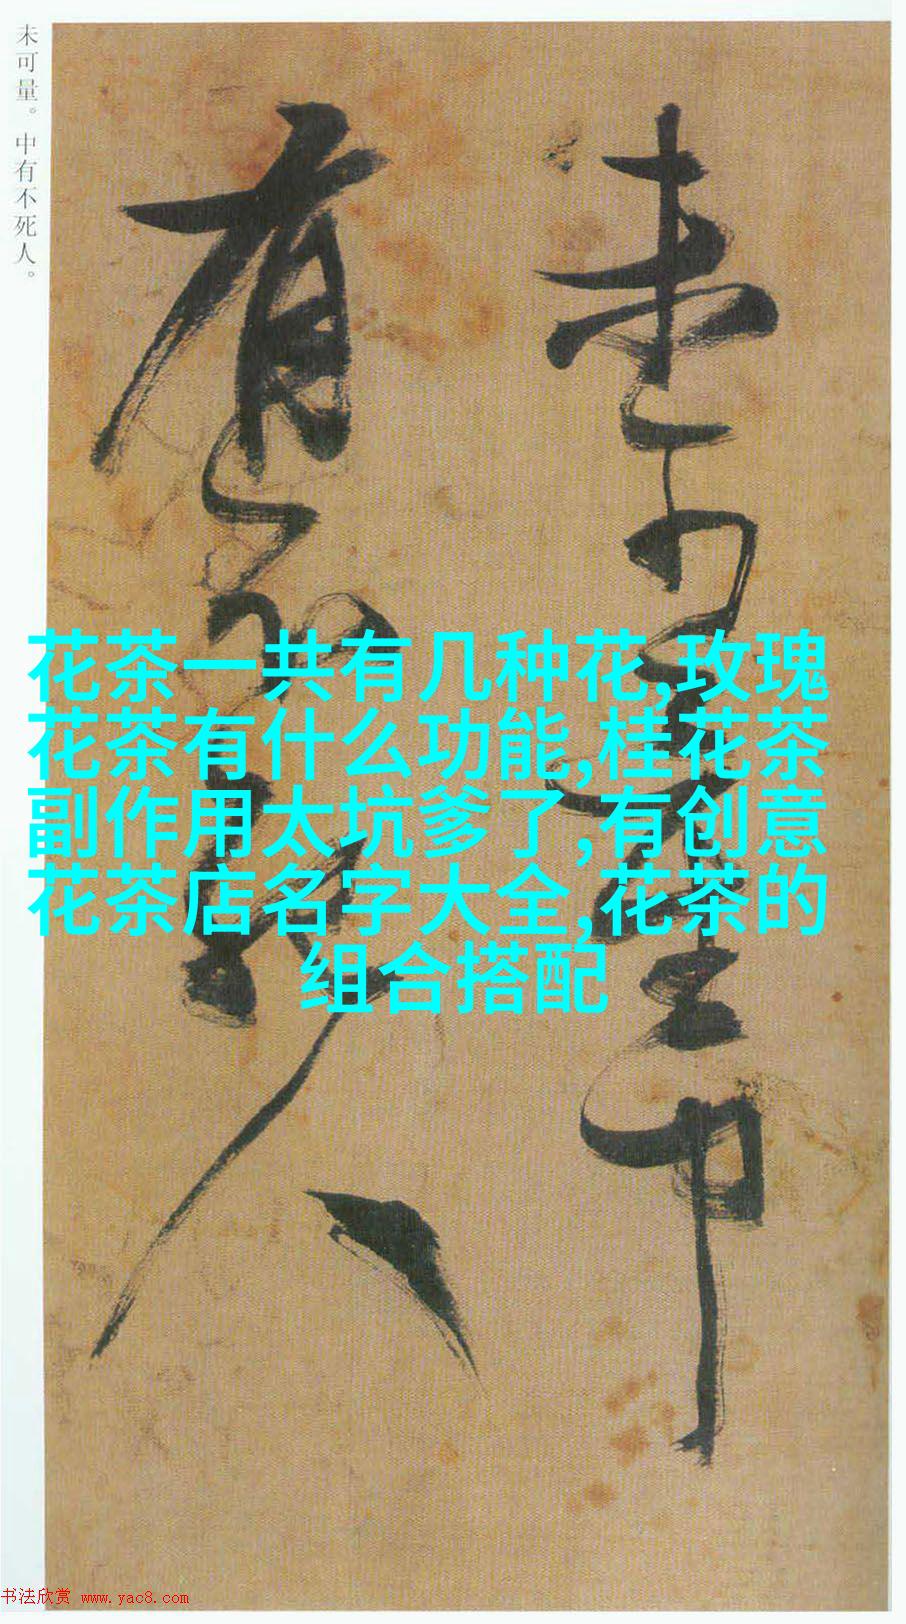 未可量。中有不死人。
未可量中
有不死人
花茶一共有几种花,玫瑰
花茶有什么功能,桂花茶
副作用太坑爹了,有创意
花茶店名字大全,花茶的
组合搭配
书法欣赏 www.yac8.com